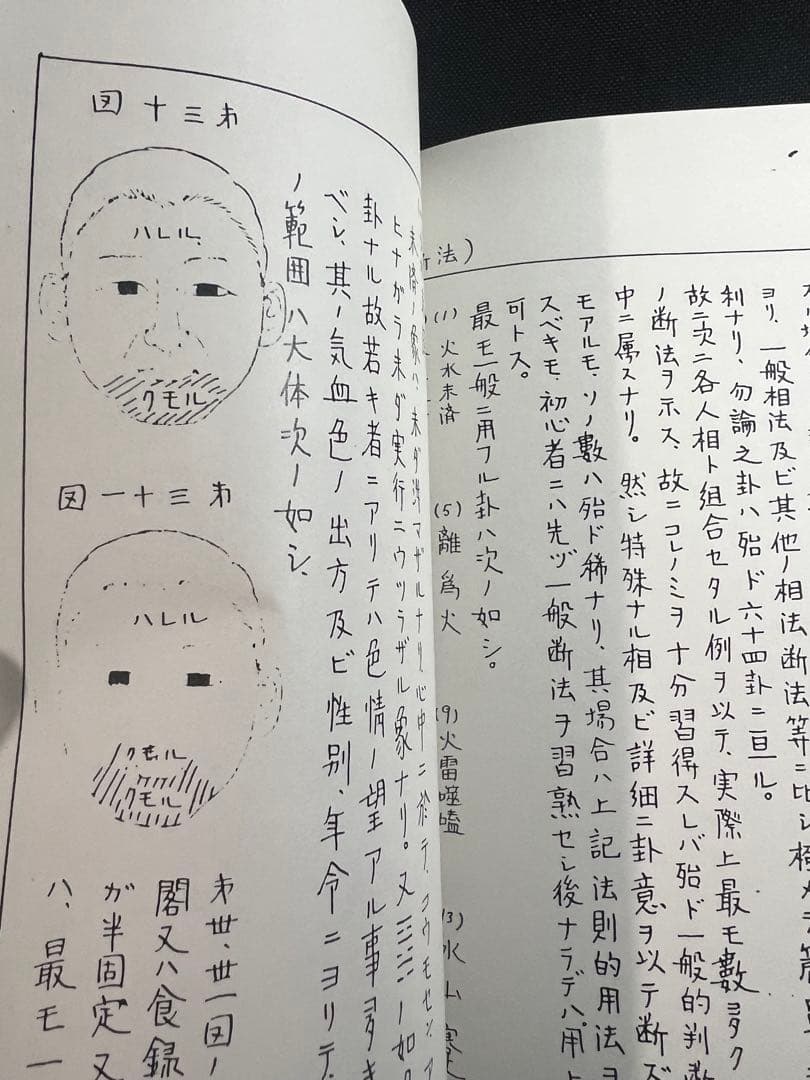 利ナリ、勿論之卦ハ殆ド六十四卦ニ亘ル。
故ニ次ニ各人相ト組合セタル例ヲ以テ、実際上最モ數多ク
ノ断法ヲ示ス、故ニコレノミヲ十分習得スレバ殆ド一般的判断
中ニ属スナリ。然シ特殊ナル相及ビ詳細ニ卦意ヲ以テ断ズ
モアルモ、ソノ數ハ殆ド稀ナリ、其場合ハ上記法則的用法ヨ
スベキモ、初心者ニハ先ヅ一般断法ヲ習熟セシ後ナラデハ用
可トス。
最モ一般ニ用フル卦ハ次ノ如シ。
(1) 火水未済
(5) 離為火
(9) 火雷噬嗑
(13) 水山
法)
ヒナガラ未ダ実行ニウツラザル象ナリ。又
卦ナル故若キ者ニアリテハ色情ノ望アル事多キ
ベシ、其ノ気血色ノ出方及ビ性別、年令ニヨリテ、
ノ範囲ハ大体次ノ如シ、
第三十図
ハレル
クモル
第三十一図
ハレル
クモル
クモル
第卅、卅一図ノ
閣又ハ食録
ガ半固定又
ハ、最モ一